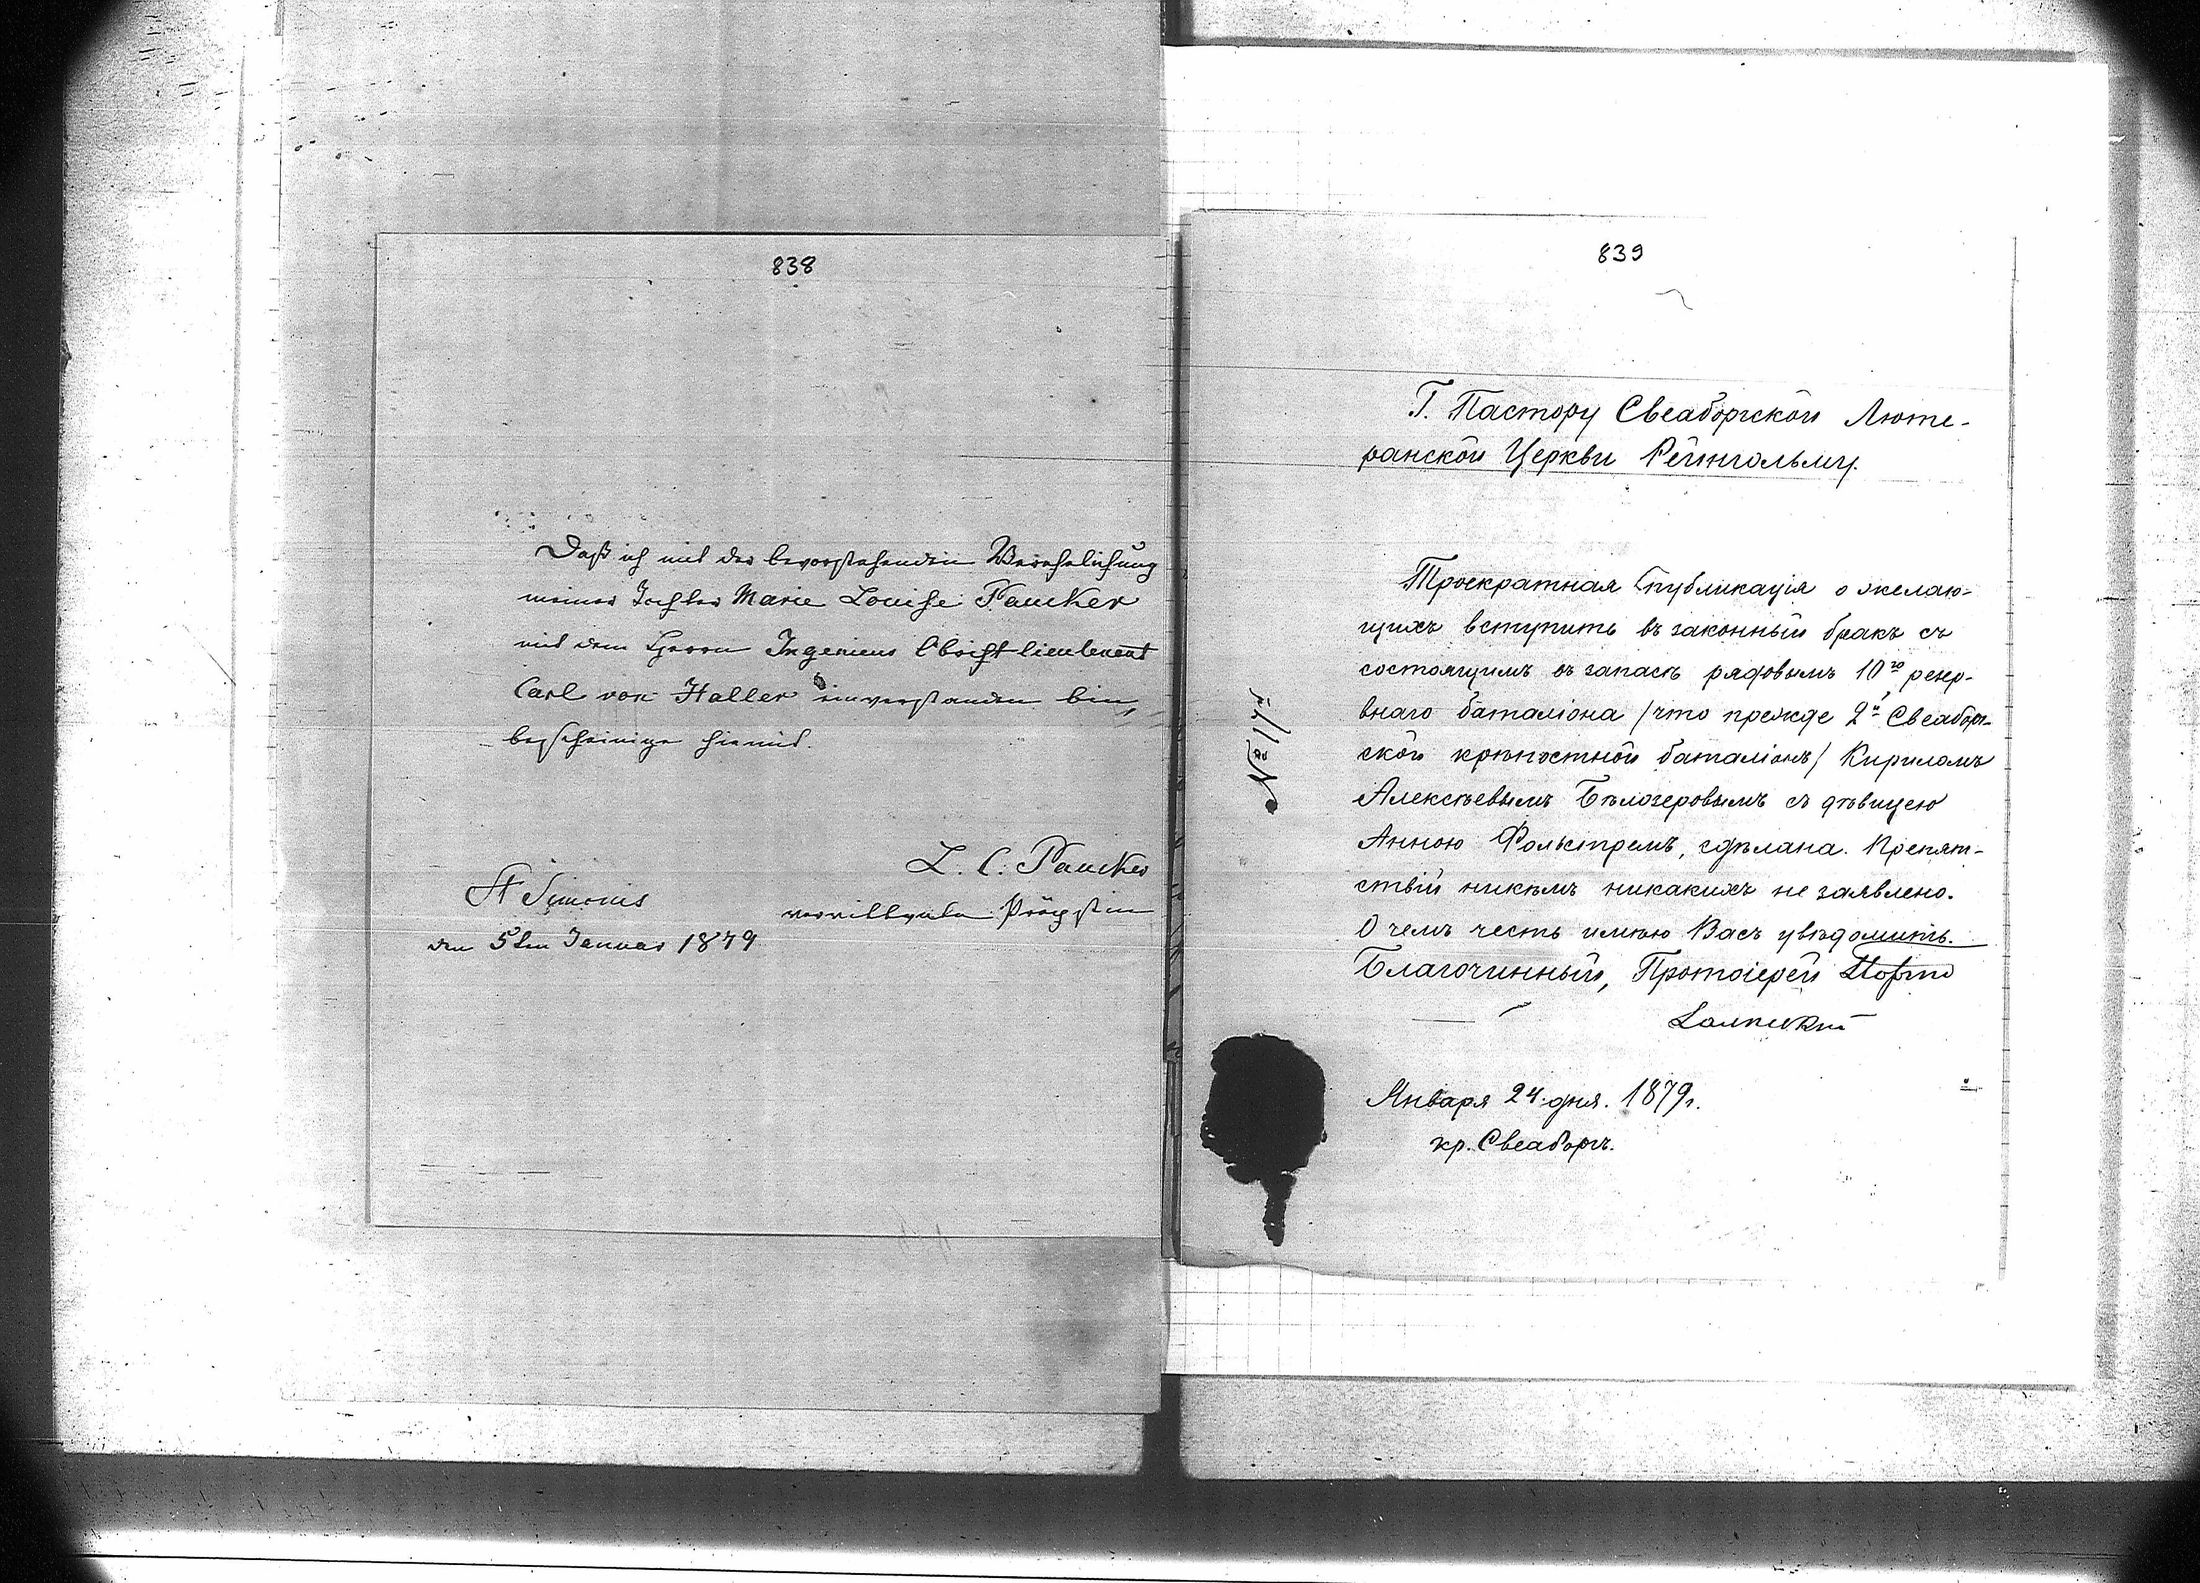 838
Daß ich mit der bevorstehenden Verehelichung
meiner Tochter Marie Louise Paucker
mit dem Herrn Ingenieur Obristlieutenant
Carl von Haller einverstanden bin,
bescheinige hiemit.
L. C. Paucker
verwittwete Pröpstin
St Simonis
den 5ten Januar 1879
839
Г. Пастору Свеаборгской Люте-
ранской Церкви Рейнгольму.
Троекратная публикація о желаю-
щихъ вступить въ законный бракъ съ
состоящимъ въ запасѣ рядовымъ 10го резер-
внаго баталіона /что прежде 2й Свеаборг-
ской крѣпостной баталіонъ/ Кириломъ
Алексѣевымъ Бѣлозеровымъ съ дѣвицею
Анною Фольстремъ, сдѣлана. Препят-
ствій никѣмъ никакихъ не заявлено.
О чемъ честь имѣю Васъ увѣдомить.
Благочинный, Протоіерей
№ 17
Января 24 дня. 1879г.
кр. Свеаборгъ.